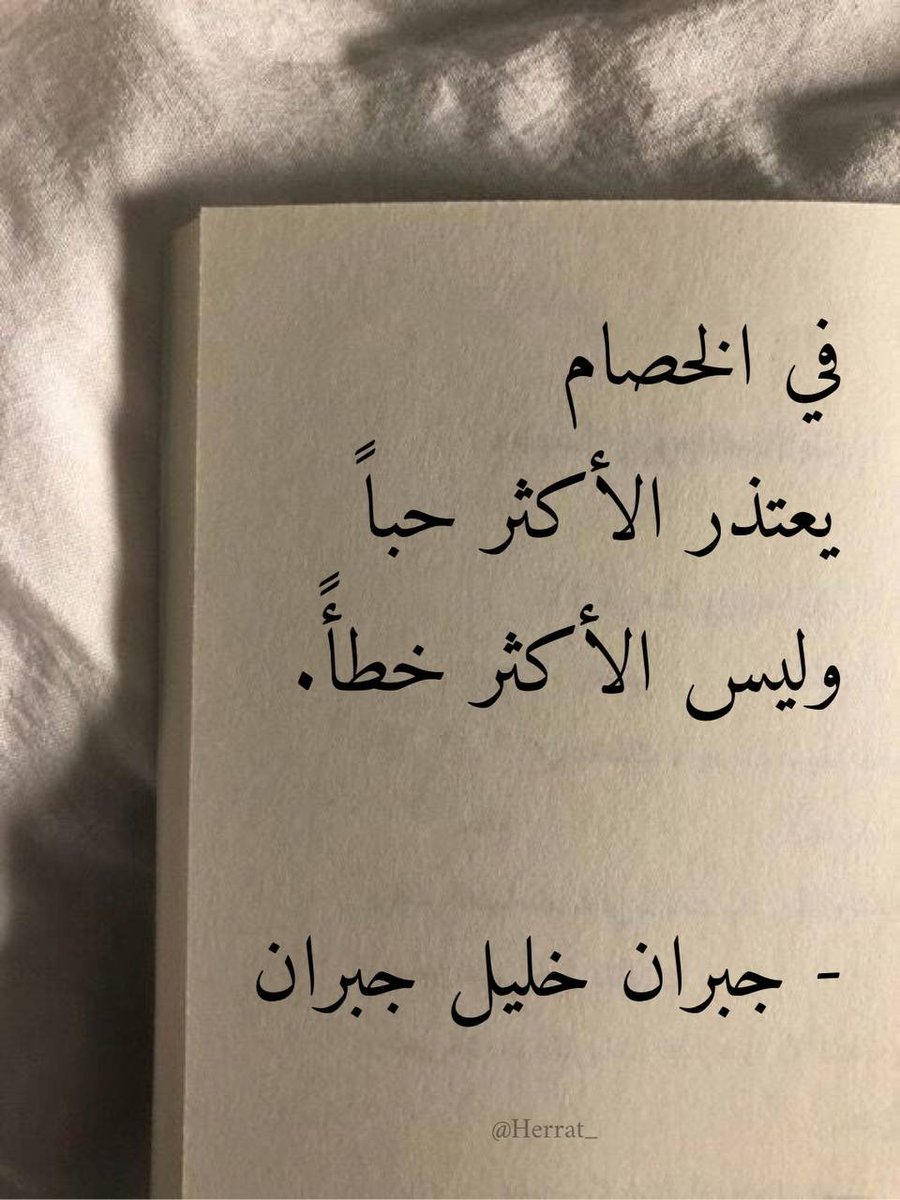 في الخصام
يعتذر الأكثر حباً
وليس الأكثر خطأً.
- جبران خليل جبران
@Herrat_